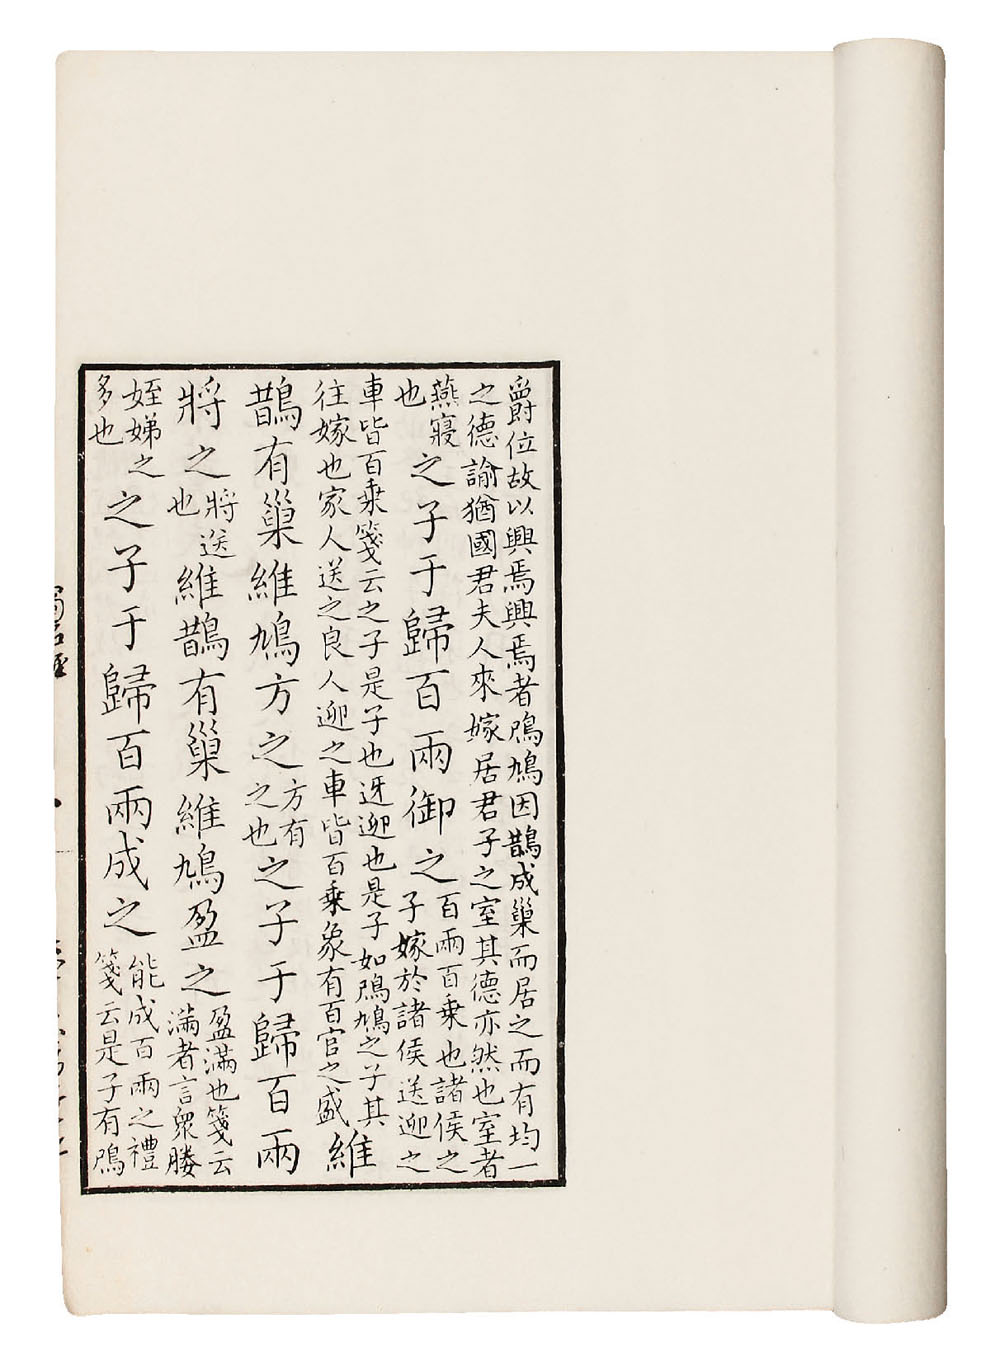 爵位故以興焉興焉者鳲鳩因鵲成巢而居之而有均一
之德諭猶國君夫人來嫁居君子之室其德亦然也室者
燕寢
也
之子于歸百兩御之
百兩百乘也諸侯之
子嫁於諸侯送迎之
車皆百乘箋云之子是子也迓迎也是子如鳲鳩之子其
往嫁也家人送之良人迎之車皆百乘象有百官之盛
維
鵲有巢維鳩方之
方有
之也
之子于歸百兩
將之
將送
也
維鵲有巢維鳩盈之
盈滿也箋云
滿者言衆媵
姪娣之
多也
之子于歸百兩成之
能成百兩之禮
箋云是子有鳲